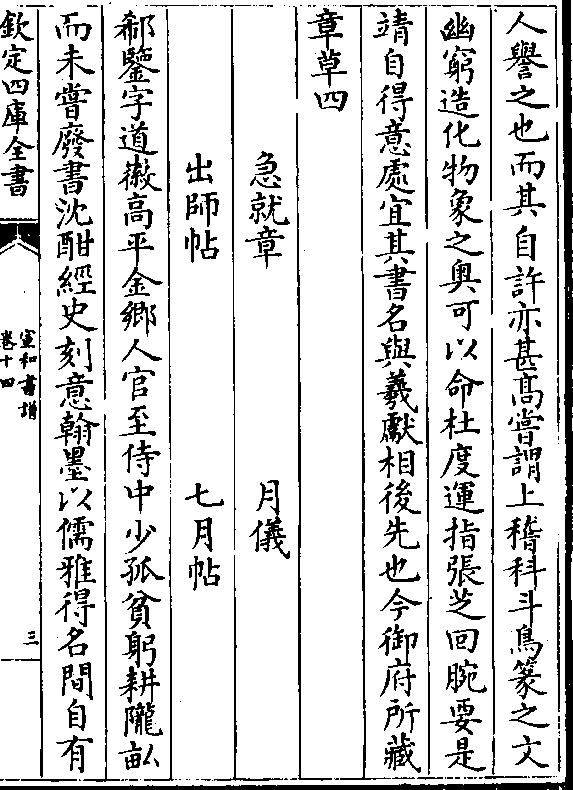 人譽之也而其自許亦甚髙嘗謂上稽科斗鳥篆之文
幽窮造化物象之奥可以命杜度運指張芝回腕要是
靖自得意處宜其書名與羲獻相後先也今御府所藏
章草四
急就章　月儀
出師帖　七月帖
郗鑒字道徽高平金鄉人官至侍中少孤貧躬耕隴畝
而未嘗廢書沈酣經史刻意翰墨以儒雅得名間自有
欽定四庫全書
宣和書譜
卷十四
三